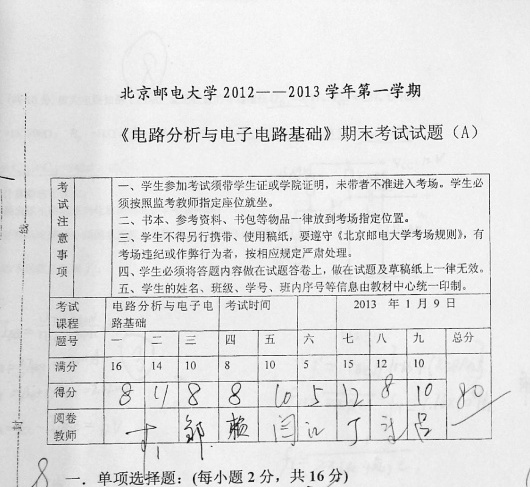 北京邮电大学2012——2013学年第一学期
《电路分析与电子电路基础》期末考试试题（A）
考试注意事项
一、学生参加考试须带学生证或学院证明，未带者不准进入考场。学生必
须按照监考教师指定座位就坐。
二、书本、参考资料、书包等物品一律放到考场指定位置。
三、学生不得另行携带、使用稿纸，要遵守《北京邮电大学考场规则》，有
考场违纪或作弊行为者，按相应规定严肃处理。
四、学生必须将答题内容做在试题答卷上，做在试题及草稿纸上一律无效。
五、学生的姓名、班级、学号、班内序号等信息由教材中心统一印制。
考试课程 电路分析与电子电路基础 考试时间 2013 年 1 月 9 日
题号 一 二 三 四 五 六 七 八 九 总分
满分 16 14 10 8 10 5 15 12 10
得分 8 11 8 8 10 5 12 8 10 80
阅卷教师
8 一．单项选择题：(每小题2分，共16分)